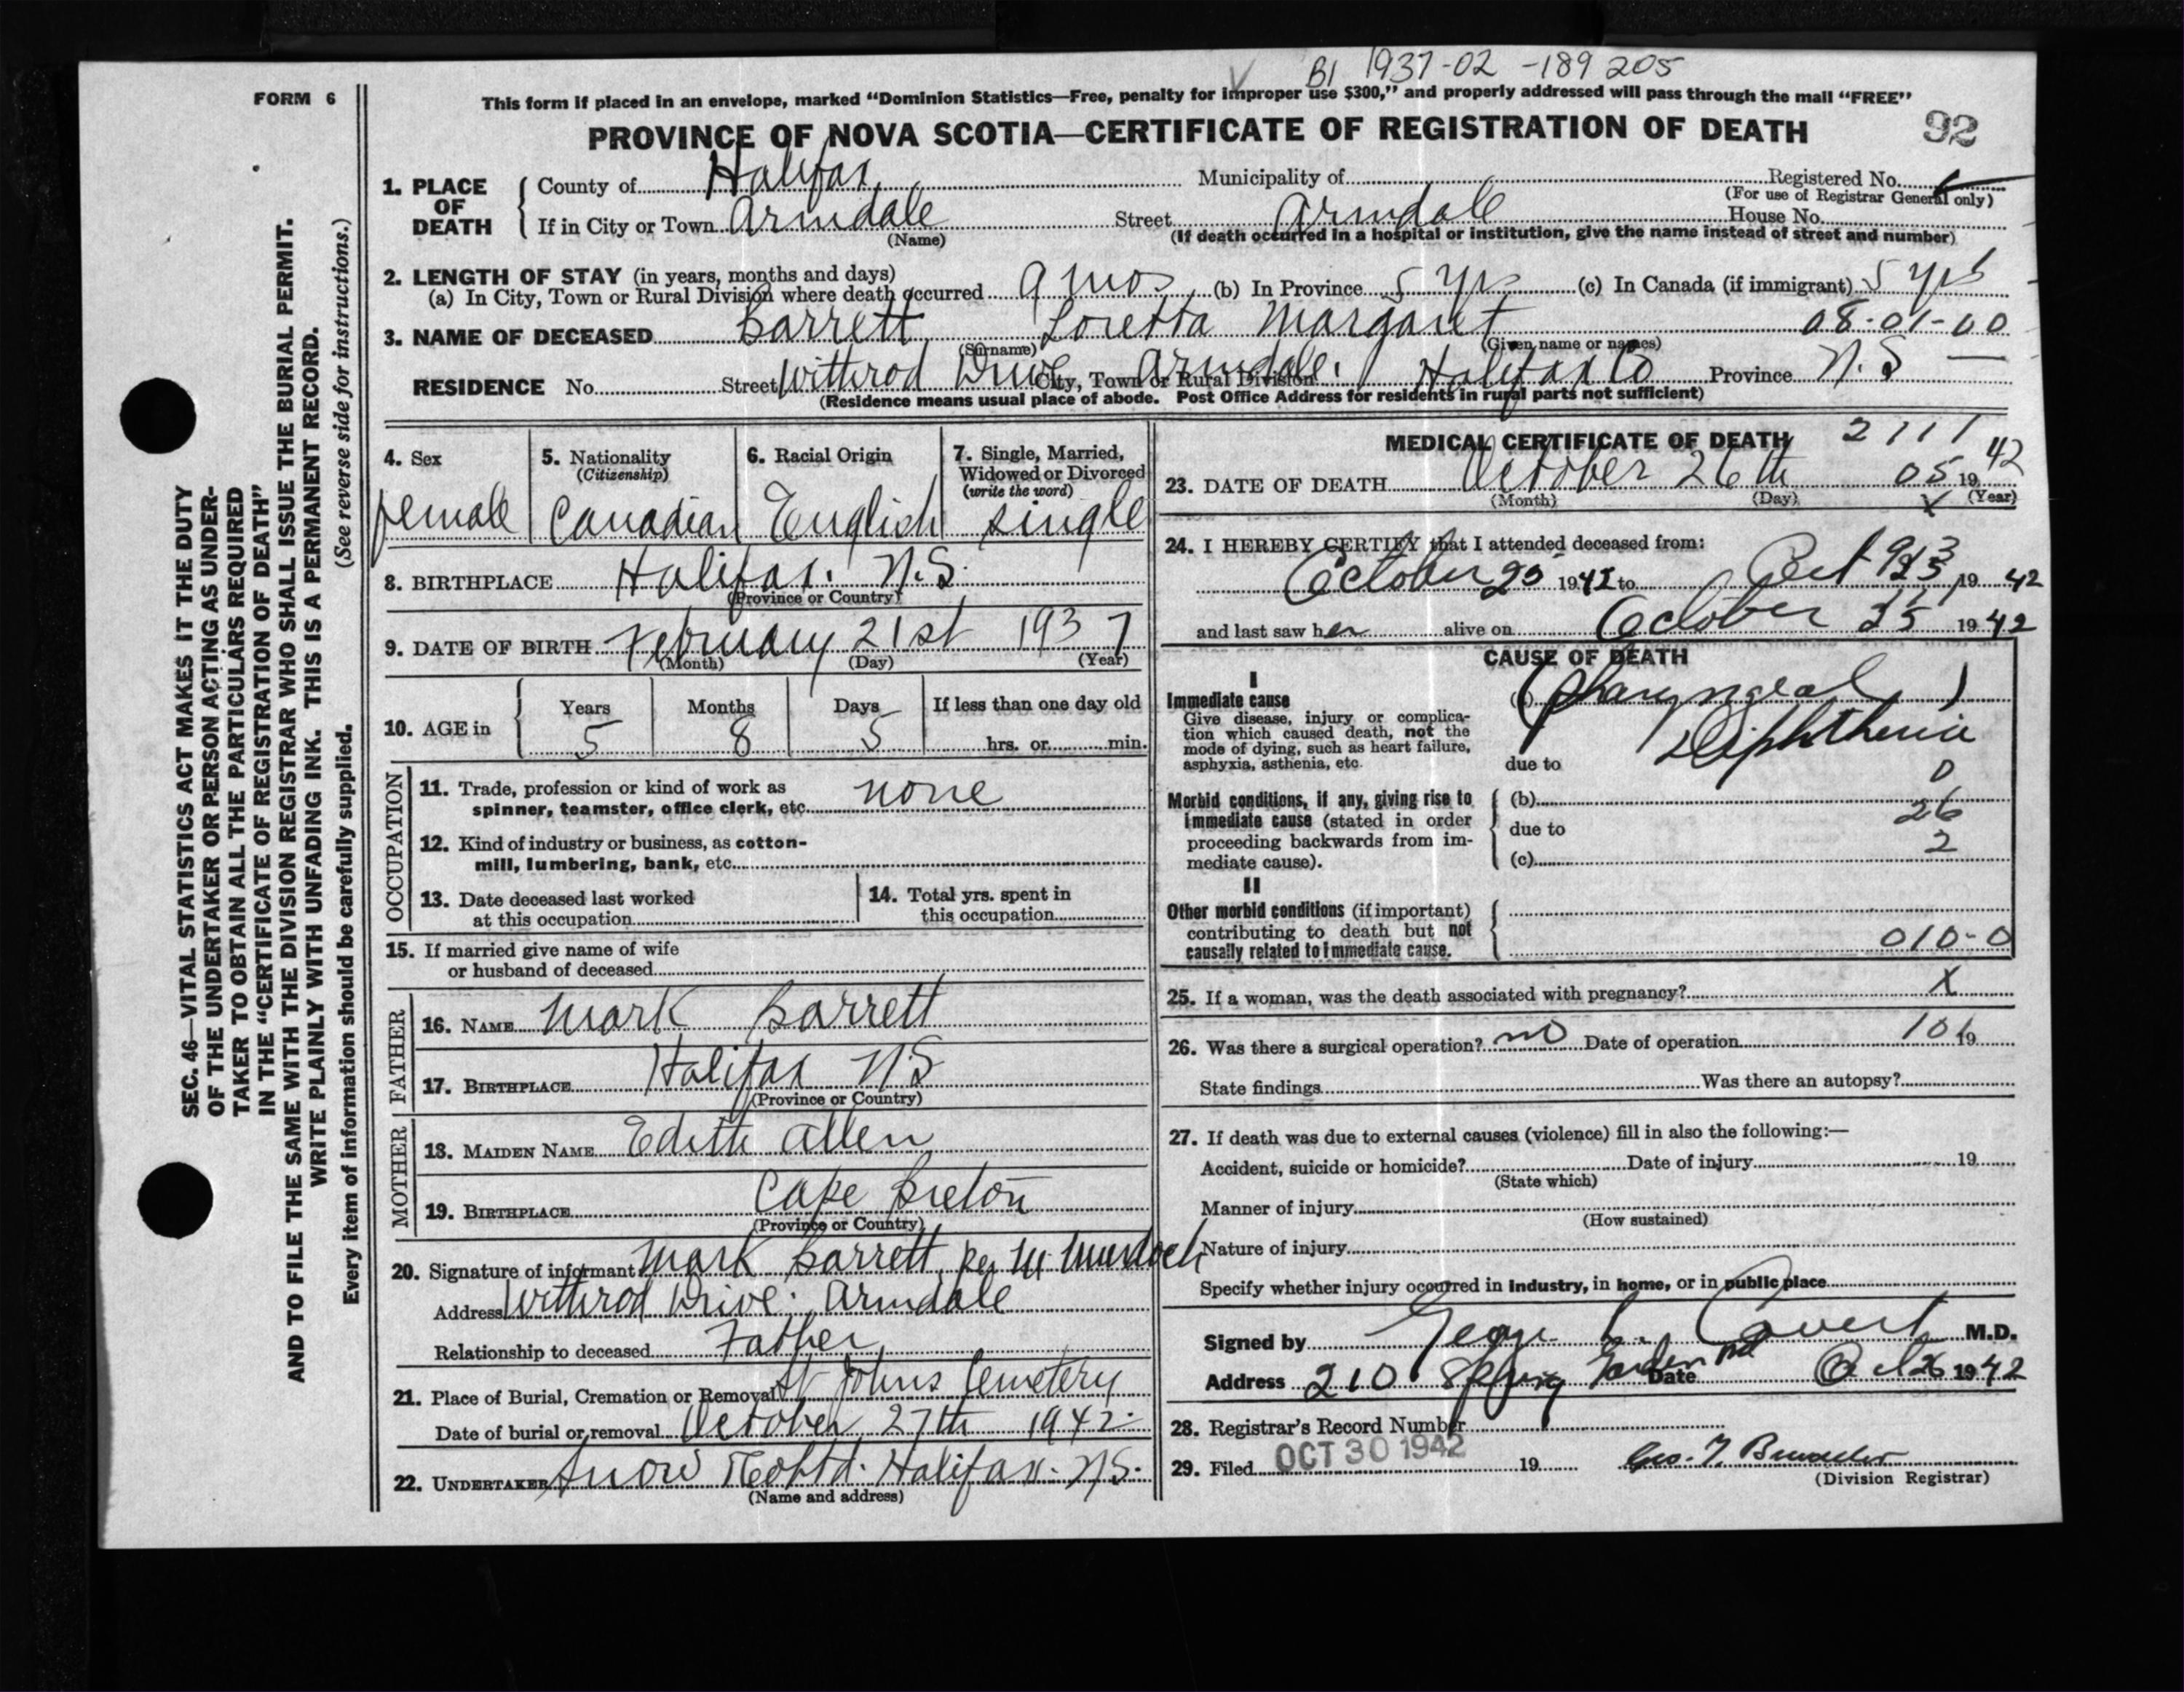 BI 1937-02-189205
FORM 6
This form if placed in an envelope, marked "Dominion Statistics—Free, penalty for improper use $300," and properly addressed will pass through the mail "FREE"
PROVINCE OF NOVA SCOTIA—CERTIFICATE OF REGISTRATION OF DEATH 92
SEC. 46—VITAL STATISTICS ACT MAKES IT THE DUTY
OF THE UNDERTAKER OR PERSON ACTING AS UNDER-
TAKER TO OBTAIN ALL THE PARTICULARS REQUIRED
IN THE "CERTIFICATE OF REGISTRATION OF DEATH"
AND TO FILE THE SAME WITH THE DIVISION REGISTRAR WHO SHALL ISSUE THE BURIAL PERMIT.
WRITE PLAINLY WITH UNFADING INK. THIS IS A PERMANENT RECORD.
Every item of information should be carefully supplied. (See reverse side for instructions.)
1. PLACE OF DEATH
County of Halifax Municipality of Registered No.
(For use of Registrar General only)
If in City or Town Armdale Street Armdale House No.
(Name) (If death occurred in a hospital or institution, give the name instead of street and number)
2. LENGTH OF STAY (in years, months and days)
(a) In City, Town or Rural Division where death occurred 9 mos (b) In Province 5 yrs (c) In Canada (if immigrant) 5 yrs
3. NAME OF DECEASED Barrett Loretta Margaret 08-01-00
(Surname) (Given name or names)
RESIDENCE No. Street Withrod Drive City, Town or Rural Division Armdale. Halifax Co Province N.S —
(Residence means usual place of abode. Post Office Address for residents in rural parts not sufficient)
4. Sex
female
5. Nationality
(Citizenship)
Canadian
6. Racial Origin
English
7. Single, Married,
Widowed or Divorced
(write the word)
single
8. BIRTHPLACE Halifax. N.S.
(Province or Country)
9. DATE OF BIRTH February 21st 1937
(Month) (Day) (Year)
10. AGE in Years Months Days If less than one day old
5 8 5 hrs. or min.
OCCUPATION
11. Trade, profession or kind of work as
spinner, teamster, office clerk, etc. none
12. Kind of industry or business, as cotton-
mill, lumbering, bank, etc.
13. Date deceased last worked
at this occupation
14. Total yrs. spent in
this occupation
15. If married give name of wife
or husband of deceased
FATHER
16. NAME Mark Barrett
17. BIRTHPLACE Halifax NS
(Province or Country)
MOTHER
18. MAIDEN NAME Edith Allen
19. BIRTHPLACE Cape Breton
(Province or Country)
20. Signature of informant Mark Barrett, per M Murdoch
Address Withrod Drive. Armdale
Relationship to deceased Father
21. Place of Burial, Cremation or Removal St Johns Cemetery
Date of burial or removal October 27th 1942.
22. UNDERTAKER Snow & Co Ltd. Halifax. NS.
(Name and address)
MEDICAL CERTIFICATE OF DEATH 2111
23. DATE OF DEATH October 26th 05 19 42
(Month) (Day) (Year)
X
24. I HEREBY CERTIFY that I attended deceased from:
October 25 1942 to Oct 19 42
and last saw her alive on October 25 1942
CAUSE OF DEATH
I
Immediate cause
Give disease, injury or complica-
tion which caused death, not the
mode of dying, such as heart failure,
asphyxia, asthenia, etc.
(a) Pharyngeal
Diphtheria
due to
0
Morbid conditions, if any, giving rise to
immediate cause (stated in order
proceeding backwards from im-
mediate cause).
(b)
26
due to
2
(c)
II
Other morbid conditions (if important)
contributing to death but not
causally related to immediate cause.
010-0
25. If a woman, was the death associated with pregnancy? X
26. Was there a surgical operation? no Date of operation 101 19
State findings Was there an autopsy?
27. If death was due to external causes (violence) fill in also the following:—
Accident, suicide or homicide? Date of injury 19
(State which)
Manner of injury
(How sustained)
Nature of injury
Specify whether injury occurred in industry, in home, or in public place
Signed by George L. Covert M.D.
Address 210 Spring Garden Rd Date Oct 26 1942
28. Registrar's Record Number
29. Filed OCT 30 1942 19
(Division Registrar)